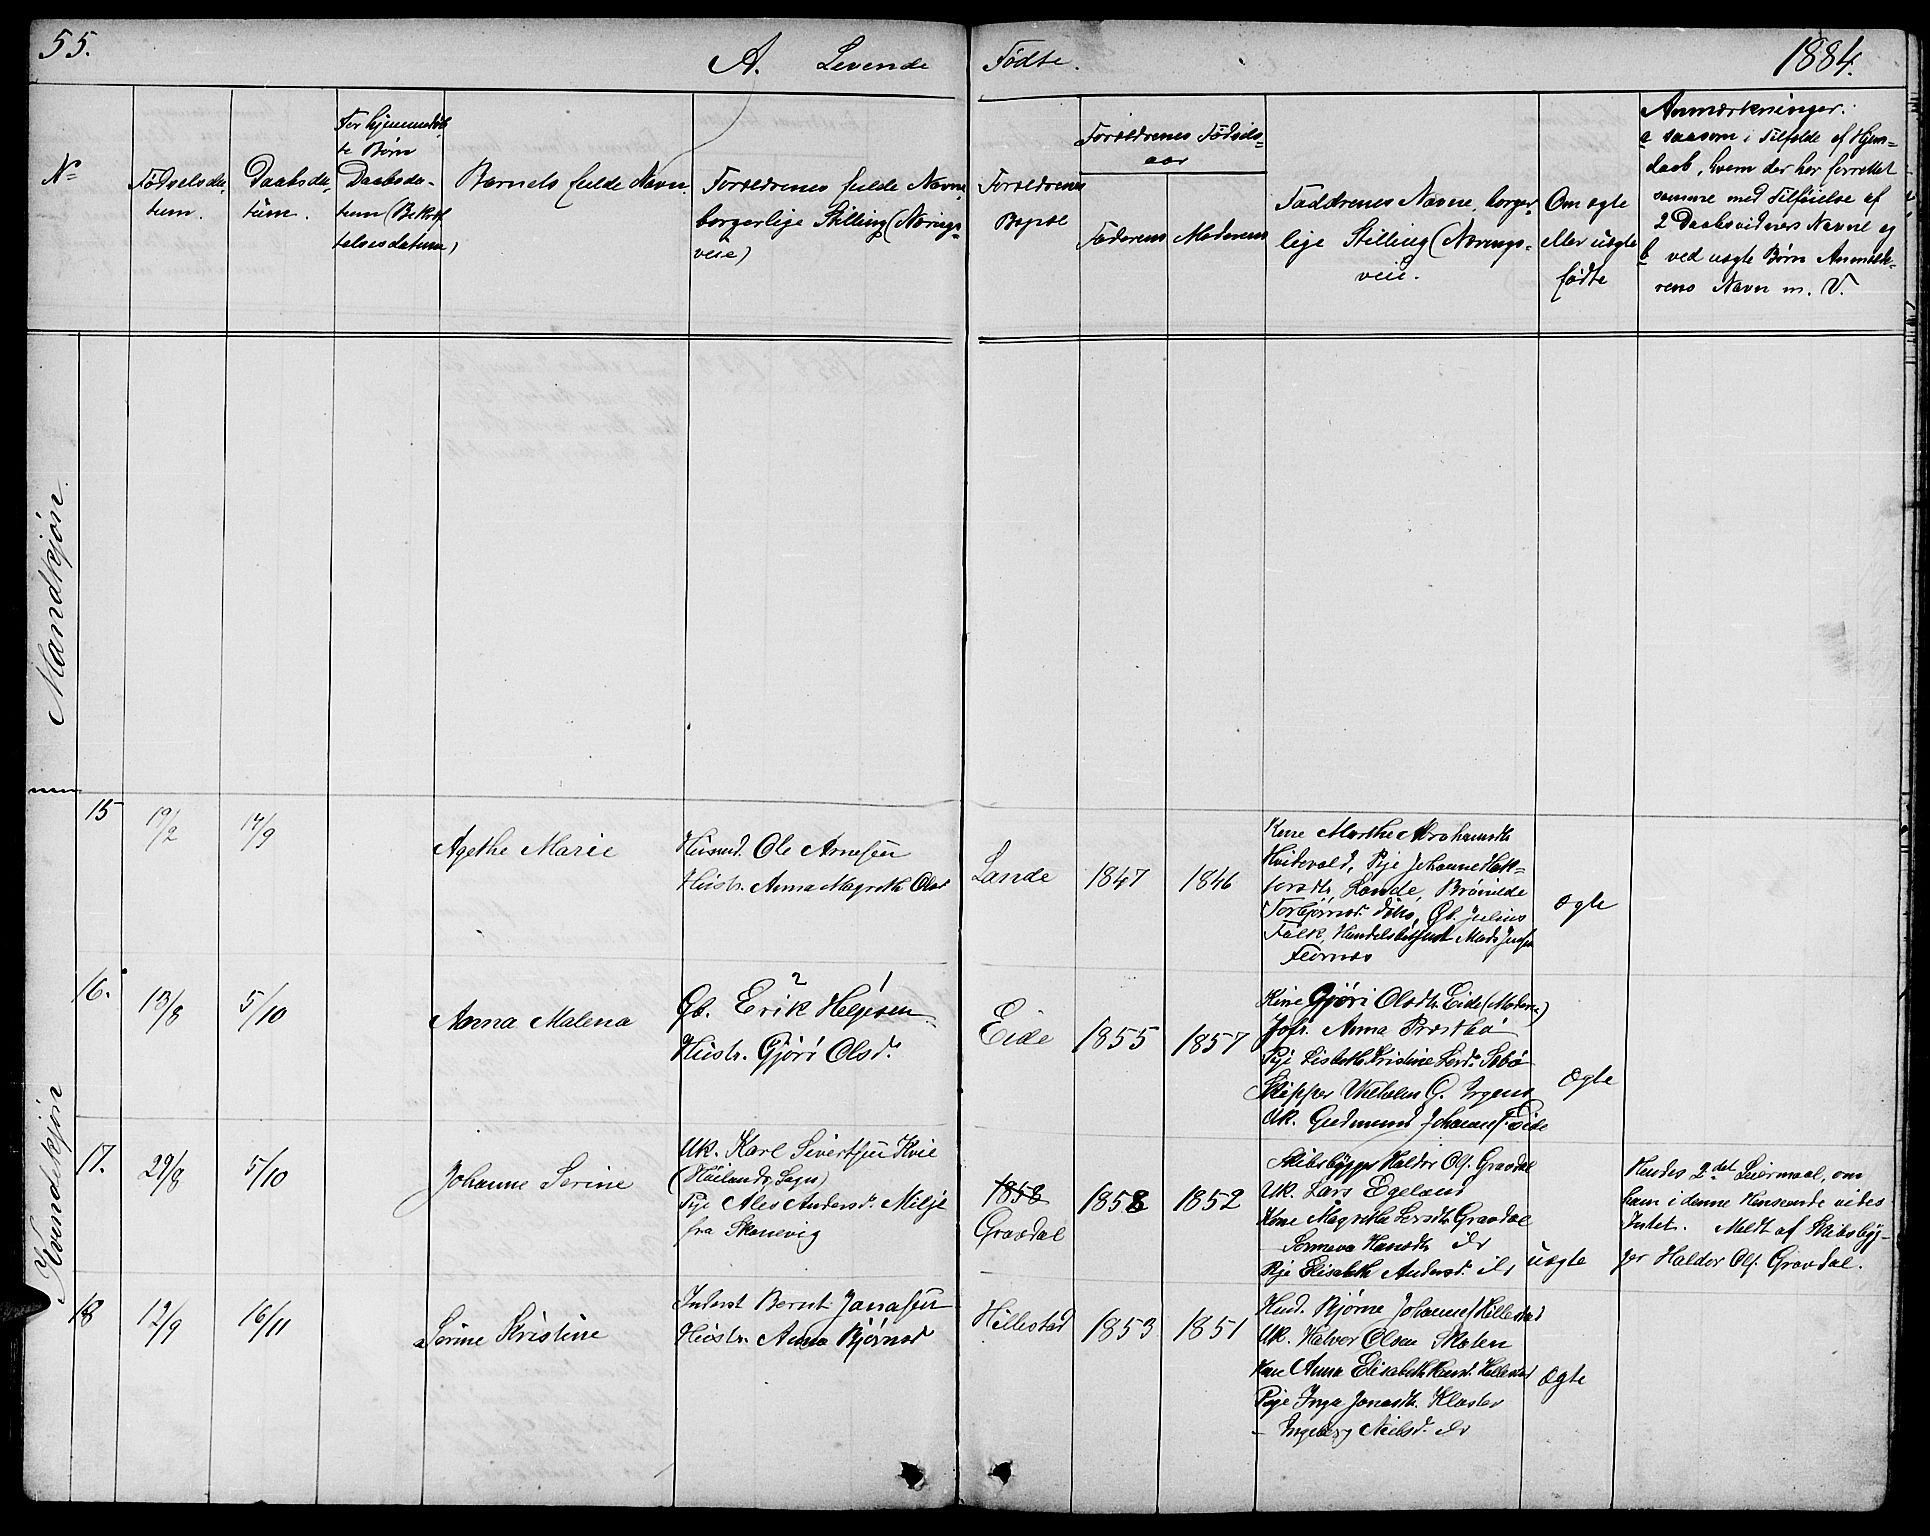 55.
A. Levende Fødte.
1884.
No
Fødselsda-
tum.
Daabsda-
tum.
For hjemmedøb-
te Børn
Daabsda-
tum (Bekræf-
telsesdatum)
Barnets fulde Navn.
Forældrenes fulde Navne,
borgerlige Stilling (Nærings-
veie)
Forældrenes
Bopæl
Forældrenes Fødsels-
aar
Faderens
Moderens
Faddrenes Navne, borger-
lige Stilling (Nærings-
veie.
Om ægte
eller uægte
fødte
Anmærkninger:
a saasom i Tilfælde af Hjem-
daab, hvem der har forrettet
samme med Tilføielse af
2 Daabsvidners Navne og
b ved uægte Børn Anmeld-
rens Navn m. V.
Mandkjøn.
Kvindekjøn
15
19/2
14/9
Agethe Marie
Husmd. Ole Arnesen
Hustr. Anna Magrethe Olsd
Lande
1847
1846
Kone Marthe Abrahamsdtr
Hvidevold, Pige Johanne Hak-
forsdtr Lande, Brønilde
Torbjørnsd. ditto, Gb. Julius
Falk, Handelsbetjent Mads
Flørnæs
ægte
16.
13/8
5/10
Anna Malena
2 1
Gb. Erik Helgesen
Hustr. Gjøri Olsd.
Eide
1855
1857
Kone Gjøri Olsdtr. Eide (Moderen)
Jofr. Anna Præstbø
Pige Lisbeth Kristine Larsd. Sebø
Skipper Wilhelm G. Irgens
Uk. Gudmund Johannes. Eide
Ægte
17.
29/8
5/10
Johanne Serine
Uk. Karl Sivertsen Kvie
(Høilands Sogn)
Pige Ales Andersd. Milje
fra Skonevig
1858
Gravdal
1858
1852
Skibsbygger Haldor Ols. Gravdal
Uk. Lars Egeland
Kone Magretha Larsdtr Gravdal
Sønneva Hansdtr do
Pige Elisabeth Andersd. do
uægte
Hendes 2det Leiermaal, om
ham i denne Henseende vides
Intet. Meldt af Skibsbyg-
ger Haldor Ols. Gravdal.
18
12/9
16/11
Serine Kristine
Inderst Bernt Janasen
Hustr. Anna Bjørnsd
Hillestad
1853
1851
Husd. Bjørne Johannes. Hillestad
Uk. Halvor Olsen Skolen
Kone Anna Elisabeth Hillestad
Pige Inga Jonasdtr. Kloster
- Ingeborg Nielsd. do
Ægte